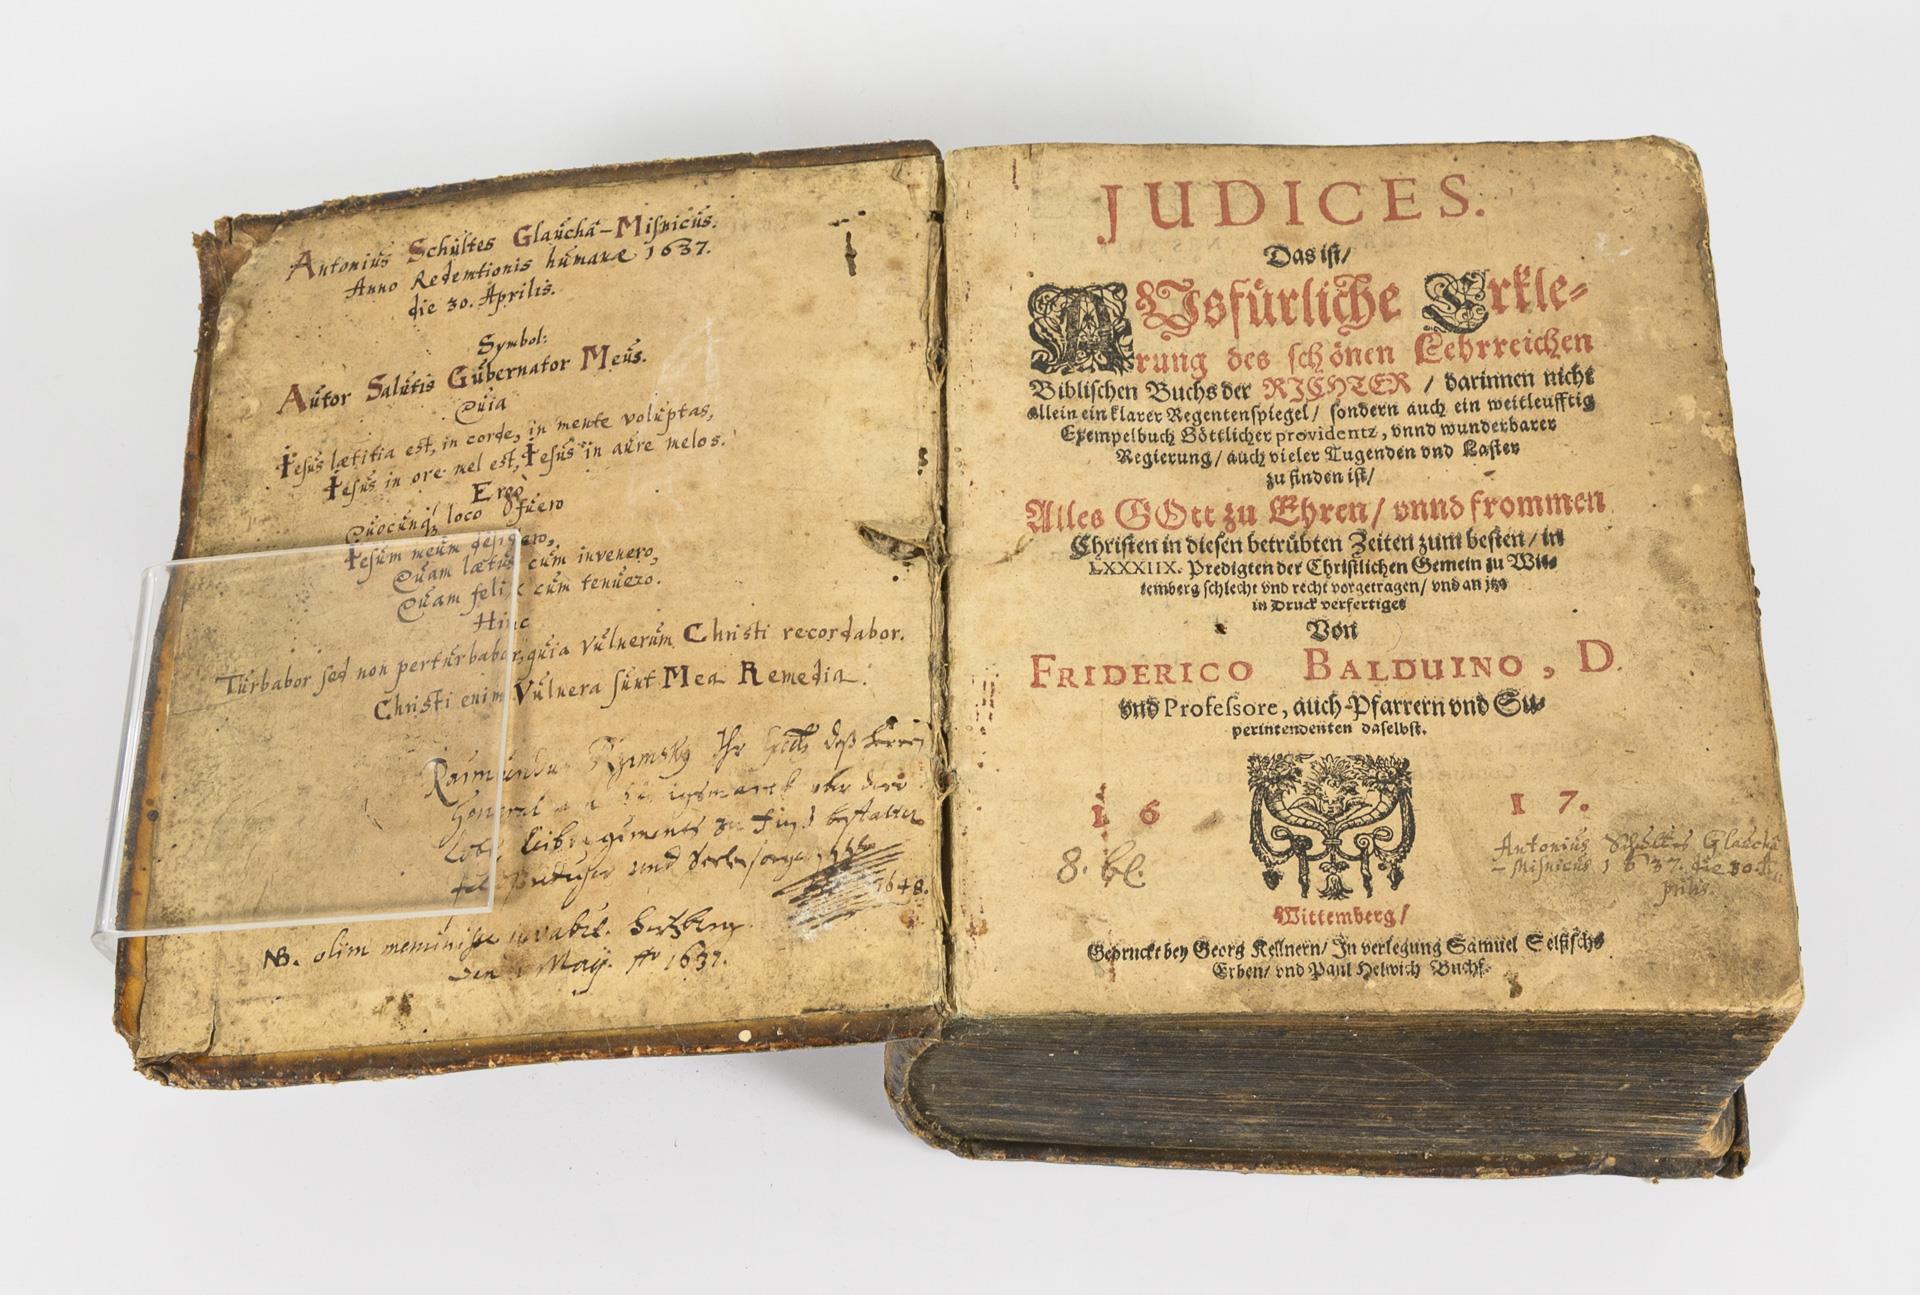 Antonius Schultes Glaucha-Misnicus.
Anno Redemtionis humanæ 1637.
die 30. Aprilis.
Symbol:
Autor Salutis Gubernator Meus.
Quia
Iesus lætitia est, in corde, in mente voluptas,
Iesus in ore mel est, Iesus in aure melos.
Ergò
Quocunq; loco fuero
Iesum meum desidero,
Quam lætus cum invenero,
Quam felix cum tenuero.
Hinc
Turbabor sed non perturbabor, quia Vulnerum Christi recordabor.
Christi enim Vulnera sunt Mea Remedia.
Ihr deß Herrn
General
Leibregiments zu bestalter
und Seelsorger 1648.
NB. olim meminisse iuvabit. Hertzberg
den May. Ao 1637.
JUDICES.
Das ist/
AUsfürliche Erkle-
rung des schönen Lehrreichen
Biblischen Buchs der RICHTER / darinnen nicht
allein ein klarer Regentenspiegel / sondern auch ein weitleufftig
Exempelbuch Göttlicher providentz, vnnd wunderbarer
Regierung / auch vieler Tugenden vnd Laster
zu finden ist /
Alles GOtt zu Ehren / vnnd frommen
Christen in diesen betrübten Zeiten zum besten / in
LXXXIIX. Predigten der Christlichen Gemein zu Wit-
temberg schlecht vnd recht vorgetragen / vnd an jtzo
in Druck verfertiget
Von
FRIDERICO BALDUINO, D.
vnd Professore, auch Pfarrern vnd Su-
perintendenten daselbst.
16 17.
8. bl.
Antonius Schultes Glaucha
-Misnicus 1637. die 30. A-
prilis.
Wittemberg /
Gedruckt bey Georg Kellnern / In verlegung Samuel Selfischs
Erben / vnd Paul Helwich Buchf.